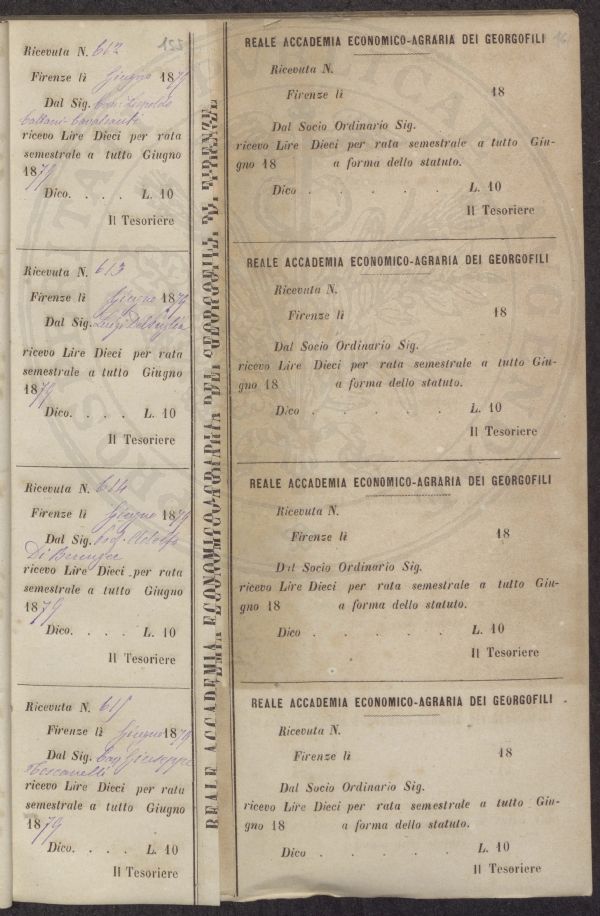 221
Ricevuta N. 612
Firenze lì Giugno 1879
Dal Sig. Leopoldo
Cattani Cavalcanti
ricevo Lire Dieci per rata
semestrale a tutto Giugno
1879
Dico. . . . L. 10
Il Tesoriere
Ricevuta N. 613
Firenze lì Giugno 1879
Dal Sig. Luigi
ricevo Lire Dieci per rata
semestrale a tutto Giugno
1879
Dico. . . . L. 10
Il Tesoriere
Ricevuta N. 614
Firenze lì Giugno 1879
Dal Sig. Adolfo
Di Berenger
ricevo Lire Dieci per rata
semestrale a tutto Giugno
1879
Dico. . . . L. 10
Il Tesoriere
Ricevuta N. 615
Firenze lì Giugno 1879
Dal Sig. Cav Giuseppe
Toscanelli
ricevo Lire Dieci per rata
semestrale a tutto Giugno
1879
Dico. . . . L. 10
Il Tesoriere
REALE ACCADEMIA ECONOMICO-AGRARIA DEI GEORGOFILI DI FIRENZE
REALE ACCADEMIA ECONOMICO-AGRARIA DEI GEORGOFILI
Ricevuta N.
Firenze lì 18
Dal Socio Ordinario Sig.
ricevo Lire Dieci per rata semestrale a tutto Giu-
gno 18 a forma dello statuto.
Dico . . . . L. 10
Il Tesoriere
REALE ACCADEMIA ECONOMICO-AGRARIA DEI GEORGOFILI
Ricevuta N.
Firenze lì 18
Dal Socio Ordinario Sig.
ricevo Lire Dieci per rata semestrale a tutto Giu-
gno 18 a forma dello statuto.
Dico . . . . L. 10
Il Tesoriere
REALE ACCADEMIA ECONOMICO-AGRARIA DEI GEORGOFILI
Ricevuta N.
Firenze lì 18
Dal Socio Ordinario Sig.
ricevo Lire Dieci per rata semestrale a tutto Giu-
gno 18 a forma dello statuto.
Dico . . . . L. 10
Il Tesoriere
REALE ACCADEMIA ECONOMICO-AGRARIA DEI GEORGOFILI
Ricevuta N.
Firenze lì 18
Dal Socio Ordinario Sig.
ricevo Lire Dieci per rata semestrale a tutto Giu-
gno 18 a forma dello statuto.
Dico . . . . L. 10
Il Tesoriere